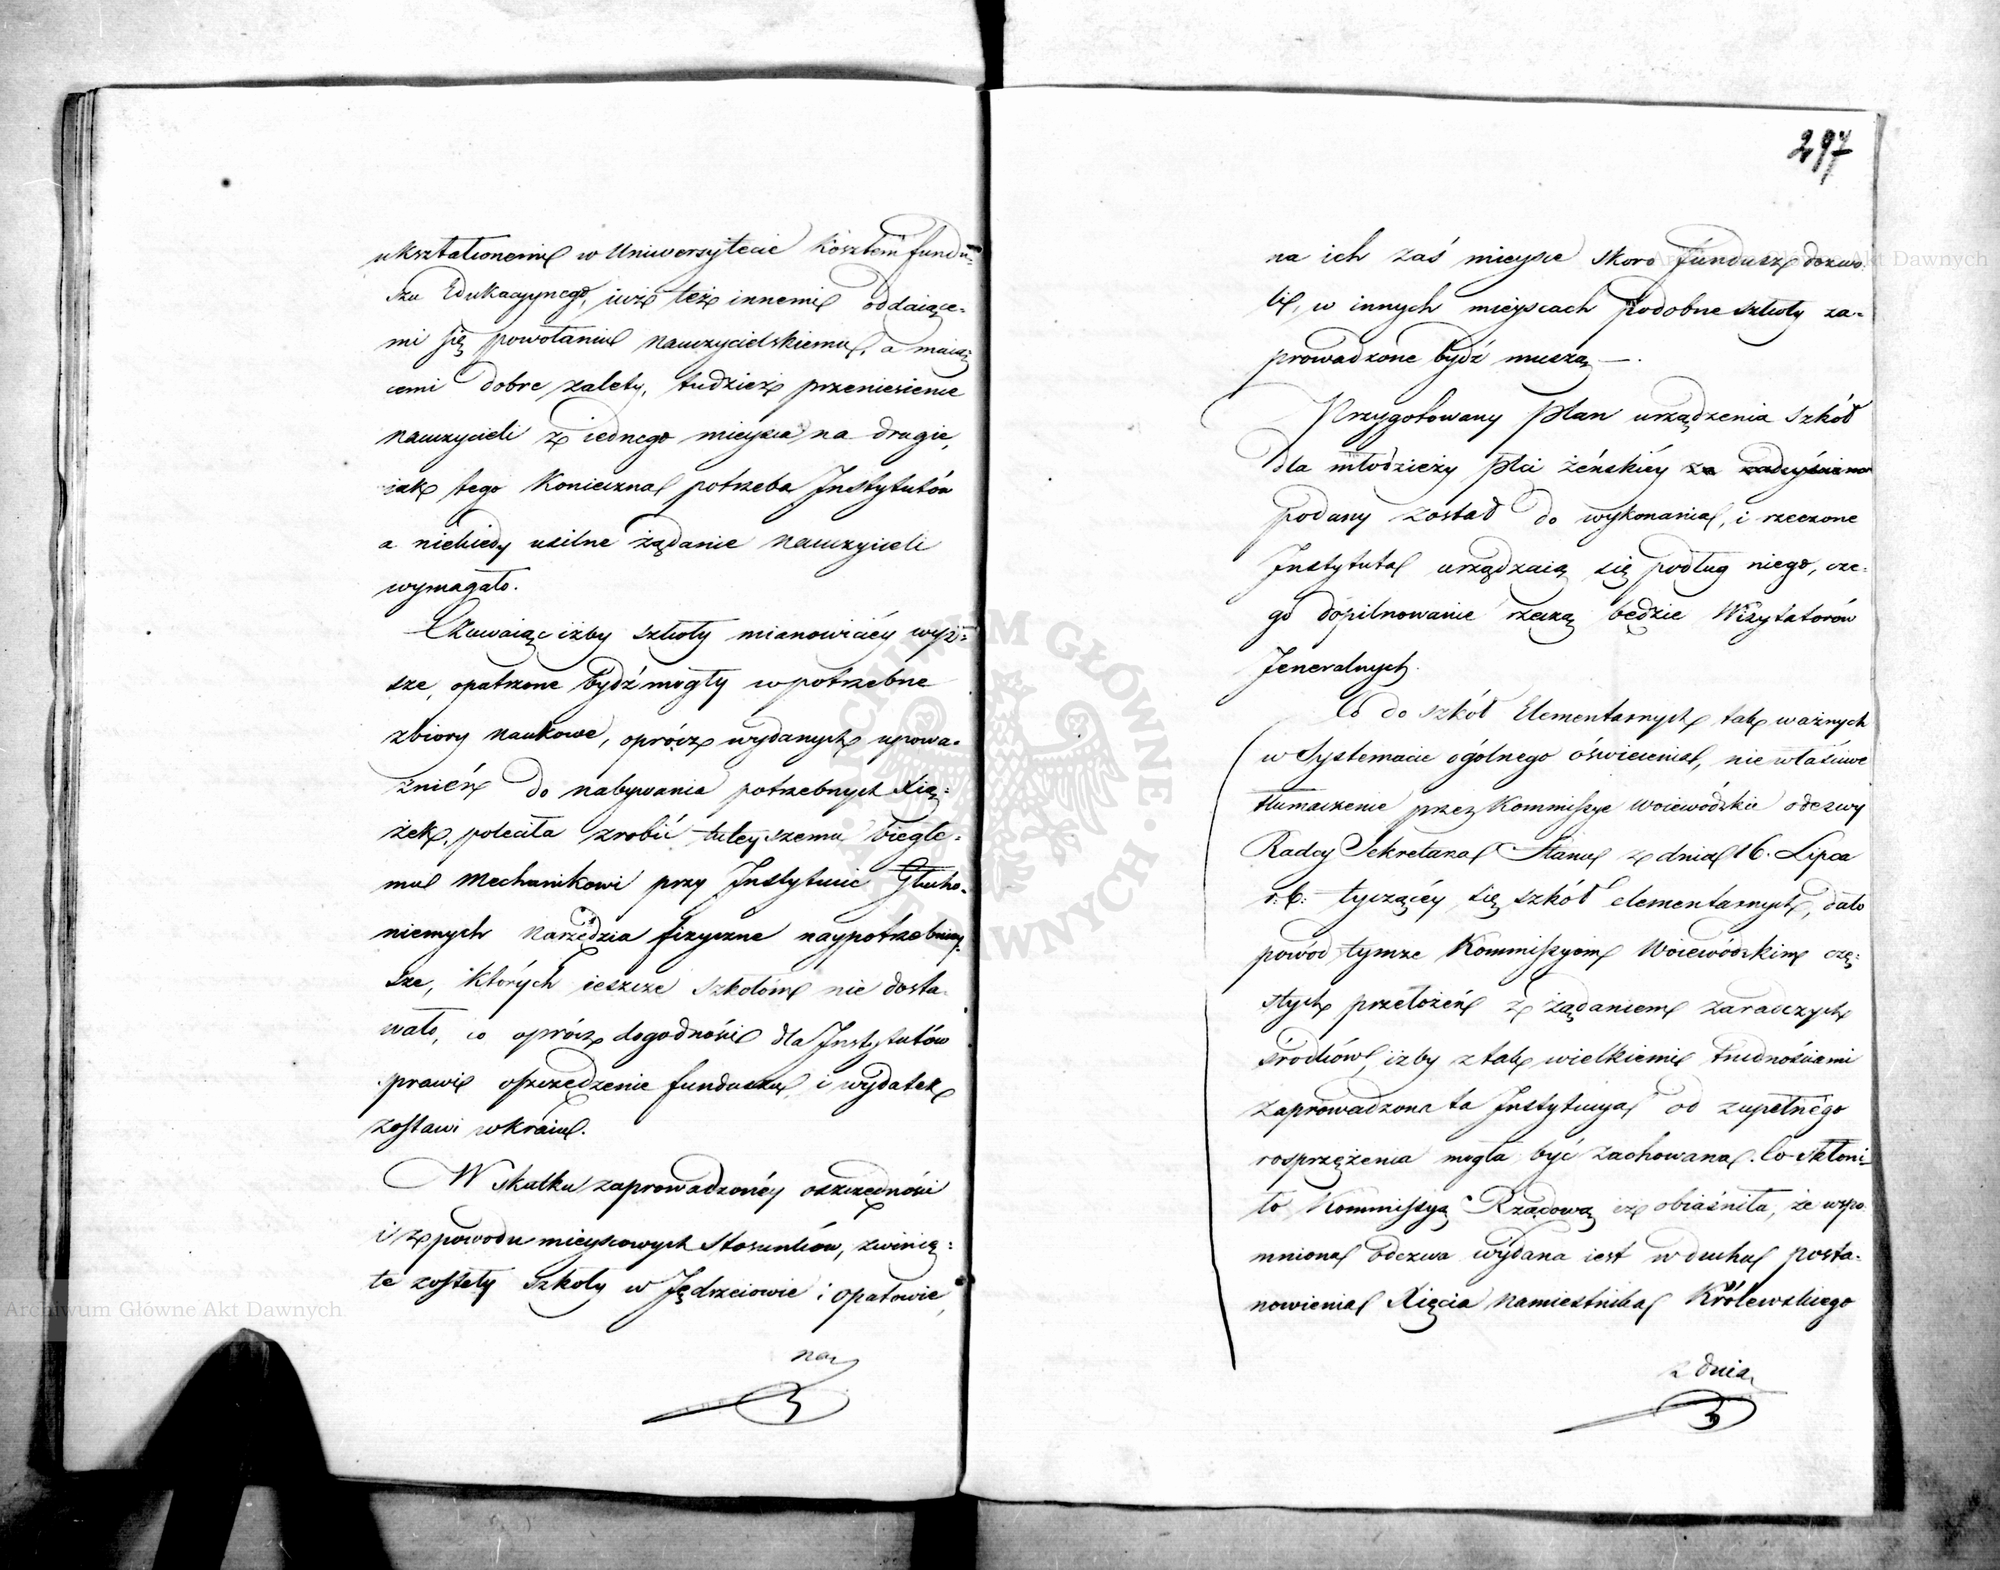 ukształconemi w Uniwersytecie kosztem fundu-
szu Edukacyynego, iuż też innemi oddaiące-
mi się powołaniu nauczycielskiemu, a maią-
cemi dobre zalety, tudzież przeniesienie
nauczycieli z iednego mieysca na drugie,
iak tego konieczna potrzeba Instytutów
a niekiedy usilne żądanie nauczycieli
wymagało.
Czuwaiąc iżby szkoły mianowicéy wyż-
sze, opatrzone bydź mogły w potrzebne
zbiory naukowe, oprócz wydanych upowa-
żnień do nabywania potrzebnych Xią-
żek, poleciła zrobić tuteyszemu biegłe-
mu Mechanikowi przy Instytucie Głucho-
niemych narzędzia fizyczne naypotrzebniey-
sze, których ieszcze szkołom nie dosta-
wało, co oprócz dogodności dla Instytutów
sprawi oszczędzenie funduszu, i wydatek
zostawi w kraiu.
W skutku zaprowadzonéy oszczędności
i z powodu mieyscowych stosunków, zwinię-
te zostały szkoły w Jędrzeiowie i Opatowie,
na
297
na ich zaś mieysce skoro fundusz dozwo-
li, w innych mieyscach podobne szkoły za-
prowadzone bydź muszą —.
Przygotowany plan urządzenia szkół
dla młodzieży płci żeńskiéy
podany został do wykonania, i rzeczone
Instytuta urządzaią się podług niego, cze-
go dopilnowanie rzeczą będzie Wizytatorów
Jeneralnych.
Co do szkół Elementarnych tak ważnych
w Systemacie ogólnego oświecenia, nie właściwe
tłumaczenie przez Kommissye Woiewódzkie odezwy
Radcy Sekretarza Stanu z dnia 16. Lipca
r. b. tyczącéy się szkół elementarnych, dało
powód tymże Kommissyom Woiewódzkim czę-
stych przełożeń z żądaniem zaradczych
środków, iżby z tak wielkiemi trudnościami
zaprowadzona ta Instytucya od zupełnego
rosprzężenia mogła być zachowana. Co skłoni-
ło Kommissyą Rządową iż obiaśniła, że wspo-
mniona odezwa wydana iest w duchu posta-
nowienia Xięcia Namiestnika Królewskiego
z dnia
Archiwum Główne Akt Dawnych